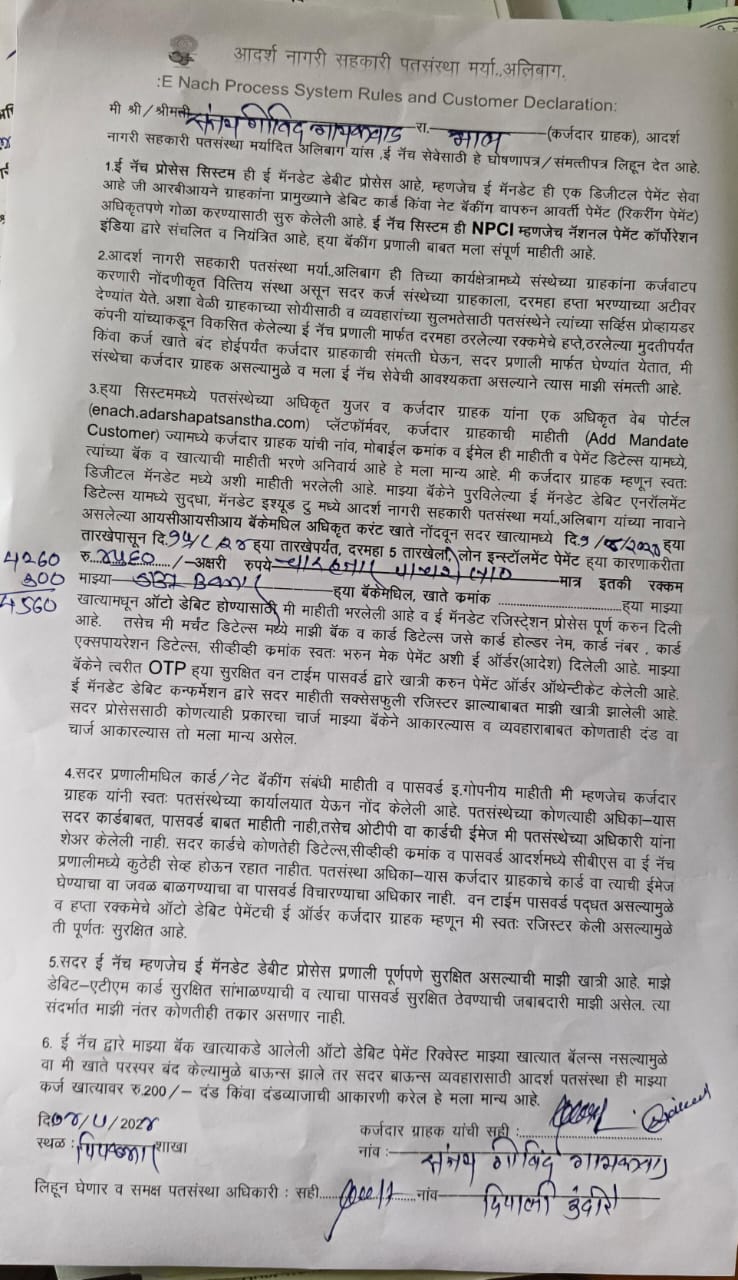 आदर्श नागरी सहकारी पतसंस्था मर्या.,अलिबाग.
:E Nach Process System Rules and Customer Declaration:
मी श्री/श्रीमती संजय गोविंद गायकवाड रा. (कर्जदार ग्राहक), आदर्श
नागरी सहकारी पतसंस्था मर्यादित अलिबाग यांस ,ई नॅच सेवेसाठी हे घोषणापत्र/संमत्तीपत्र लिहून देत आहे.
1.ई नॅच प्रोसेस सिस्टम ही ई मॅनडेट डेबीट प्रोसेस आहे, म्हणजेच ई मॅनडेट ही एक डिजीटल पेमेंट सेवा
आहे जी आरबीआयने ग्राहकांना प्रामुख्याने डेबिट कार्ड किंवा नेट बॅकींग वापरुन आवर्ती पेमेंट (रिकरींग पेमेंट)
अधिकृतपणे गोळा करण्यासाठी सुरु केलेली आहे. ई नॅच सिस्टम ही NPCI म्हणजेच नॅशनल पेमेंट कॉर्पोरेशन
इंडिया द्वारे संचलित व नियंत्रित आहे, ह्या बॅकींग प्रणाली बाबत मला संपूर्ण माहीती आहे.
2.आदर्श नागरी सहकारी पतसंस्था मर्या.,अलिबाग ही तिच्या कार्यक्षेत्रामध्ये संस्थेच्या ग्राहकांना कर्जवाटप
करणारी नोंदणीकृत वित्तिय संस्था असून सदर कर्ज संस्थेच्या ग्राहकाला, दरमहा हप्ता भरण्याच्या अटीवर
देण्यांत येते. अशा वेळी ग्राहकाच्या सोयीसाठी व व्यवहारांच्या सुलभतेसाठी पतसंस्थेने त्यांच्या सर्व्हिस प्रोव्हायडर
कंपनी यांच्याकडून विकसित केलेल्या ई नॅच प्रणाली मार्फत दरमहा ठरलेल्या रक्कमेचे हप्ते,ठरलेल्या मुदतीपर्यंत
किंवा कर्ज खाते बंद होईपर्यंत कर्जदार ग्राहकाची संमत्ती घेऊन, सदर प्रणाली मार्फत घेण्यांत येतात, मी
संस्थेचा कर्जदार ग्राहक असल्यामुळे व मला ई नॅच सेवेची आवश्यकता असल्याने त्यास माझी संमत्ती आहे.
3.ह्या सिस्टममध्ये पतसंस्थेच्या अधिकृत युजर व कर्जदार ग्राहक यांना एक अधिकृत वेब पोर्टल
(enach.adarshapatsanstha.com) प्लॅटफॉर्मवर, कर्जदार ग्राहकाची माहीती (Add Mandate
Customer) ज्यामध्ये कर्जदार ग्राहक यांची नांव, मोबाईल क्रमांक व ईमेल ही माहीती व पेमेंट डिटेल्स यामध्ये,
त्यांच्या बॅंक व खात्याची माहीती भरणे अनिवार्य आहे हे मला मान्य आहे. मी कर्जदार ग्राहक म्हणून स्वतः
डिजीटल मॅनडेट मध्ये अशी माहीती भरलेली आहे. माझ्या बॅकेने पुरविलेल्या ई मॅनडेट डेबिट एनरॉलमेंट
डिटेल्स यामध्ये सुद्धा, मॅनडेट इश्यूड टु मध्ये आदर्श नागरी सहकारी पतसंस्था मर्या.,अलिबाग यांच्या नावाने
असलेल्या आयसीआयसीआय बॅकेमधिल अधिकृत करंट खाते नोंदवून सदर खात्यामध्ये दि. ह्या
तारखेपासून दि. ह्या तारखेपर्यंत, दरमहा 5 तारखेला, लोन इन्स्टॉलमेंट पेमेंट ह्या कारणाकरीता
4260 रु.४५६० /-अक्षरी रुपये मात्र इतकी रक्कम
300 माझ्या Bank ह्या बॅकेमधिल, खाते क्रमांक ह्या माझ्या
4560 खात्यामधून ऑटो डेबिट होण्यासाठी मी माहीती भरलेली आहे व ई मॅनडेट रजिस्ट्रेशन प्रोसेस पूर्ण करुन दिली
आहे. तसेच मी मर्चंट डिटेल्स मध्ये माझी बॅक व कार्ड डिटेल्स जसे कार्ड होल्डर नेम, कार्ड नंबर , कार्ड
एक्सपायरेशन डिटेल्स, सीव्हीव्ही क्रमांक स्वतः भरुन मेक पेमेंट अशी ई ऑर्डर(आदेश) दिलेली आहे. माझ्या
बॅकेने त्वरीत OTP ह्या सुरक्षित वन टाईम पासवर्ड द्वारे खात्री करुन पेमेंट ऑर्डर ऑथेन्टीकेट केलेली आहे.
ई मॅनडेट डेबिट कन्फर्मेशन द्वारे सदर माहीती सक्सेसफुली रजिस्टर झाल्याबाबत माझी खात्री झालेली आहे.
सदर प्रोसेससाठी कोणत्याही प्रकारचा चार्ज माझ्या बॅकेने आकारल्यास व व्यवहाराबाबत कोणताही दंड वा
चार्ज आकारल्यास तो मला मान्य असेल.
4.सदर प्रणालीमधिल कार्ड/नेट बॅकींग संबंधी माहीती व पासवर्ड इ.गोपनीय माहीती मी म्हणजेच कर्जदार
ग्राहक यांनी स्वतः पतसंस्थेच्या कार्यालयात येऊन नोंद केलेली आहे. पतसंस्थेच्या कोणत्याही अधिका-यास
सदर कार्डबाबत, पासवर्ड बाबत माहीती नाही,तसेच ओटीपी वा कार्डची ईमेज मी पतसंस्थेच्या अधिकारी यांना
शेअर केलेली नाही. सदर कार्डचे कोणतेही डिटेल्स,सीव्हीव्ही क्रमांक व पासवर्ड आदर्शमध्ये सीबीएस वा ई नॅच
प्रणालीमध्ये कुठेही सेव्ह होऊन रहात नाहीत. पतसंस्था अधिका-यास कर्जदार ग्राहकाचे कार्ड वा त्याची ईमेज
घेण्याचा वा जवळ बाळगण्याचा वा पासवर्ड विचारण्याचा अधिकार नाही. वन टाईम पासवर्ड पद्धत असल्यामुळे
व हप्ता रक्कमेचे ऑटो डेबिट पेमेंटची ई ऑर्डर कर्जदार ग्राहक म्हणून मी स्वतः रजिस्टर केली असल्यामुळे
ती पूर्णतः सुरक्षित आहे.
5.सदर ई नॅच म्हणजेच ई मॅनडेट डेबीट प्रोसेस प्रणाली पूर्णपणे सुरक्षित असल्याची माझी खात्री आहे. माझे
डेबिट-एटीएम कार्ड सुरक्षित सांभाळण्याची व त्याचा पासवर्ड सुरक्षित ठेवण्याची जबाबदारी माझी असेल. त्या
संदर्भात माझी नंतर कोणतीही तक्रार असणार नाही.
6. ई नॅच द्वारे माझ्या बॅक खात्याकडे आलेली ऑटो डेबिट पेमेंट रिक्वेस्ट माझ्या खात्यात बॅलन्स नसल्यामुळे
वा मी खाते परस्पर बंद केल्यामुळे बाऊन्स झाले तर सदर बाऊन्स व्यवहारासाठी आदर्श पतसंस्था ही माझ्या
कर्ज खात्यावर रु.200/- दंड किंवा दंडव्याजाची आकारणी करेल हे मला मान्य आहे.
दि. /2024 कर्जदार ग्राहक यांची सही :
स्थळ : शाखा नांव : संजय गोविंद गायकवाड
लिहून घेणार व समक्ष पतसंस्था अधिकारी : सही नांव दिपाली